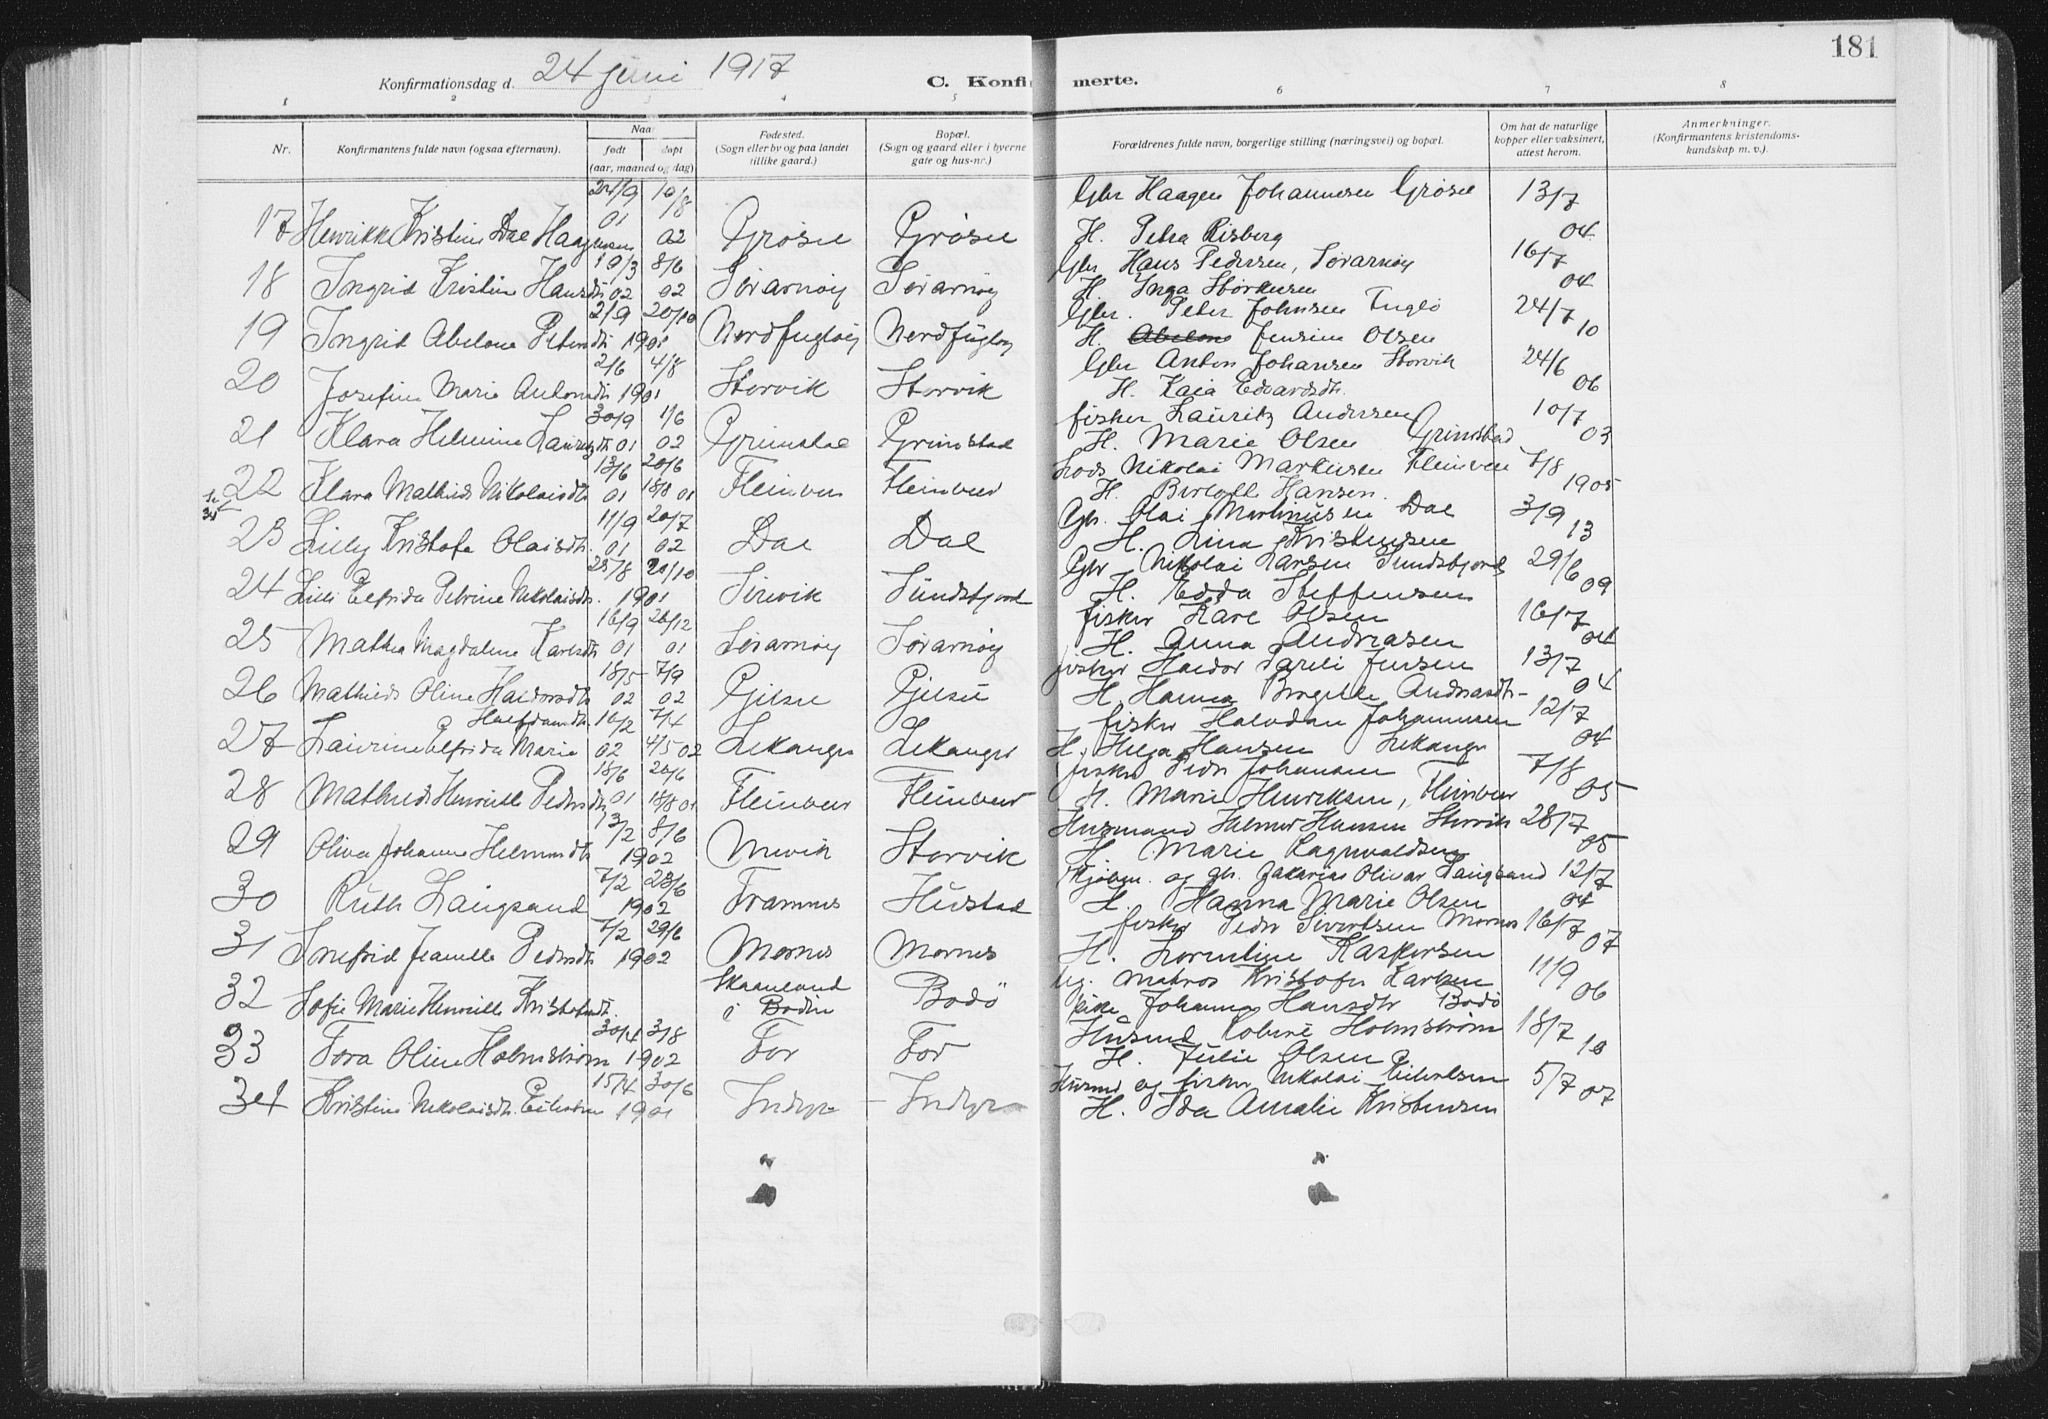 181
Konfirmationsdag d. 24 juni 1917
C. Konfirmerte.
1 2 3 4 5 6 7 8
Nr.
Konfirmantens fulde navn (ogsaa efternavn).
Naar
født
døpt
(aar, maaned og dag)
Fødested.
(Sogn eller by og paa landet
tillike gaard.)
Bopæl.
(Sogn og gaard eller i byerne
gate og hus-nr.)
Forældrenes fulde navn, borgerlige stilling (næringsvei) og bopæl.
Om hat de naturlige
kopper eller vaksinert,
attest herom.
Anmerkninger.
(Konfirmantens kristendoms-
kundskap m. v.).
24/9 10/8 Gbr Haagen Johannesen Grøsæ 13/7
17 Henrikke Kristine Dal Haagensen 01 02 Grøsæ Grøsæ H. Petra Risberg 04
19/3 8/6 Gbr Hans Pedersen, Sørarnøy 16/7
18 Ingrid Kristine Hansdtr 02 02 Sørarnøy Sørarnøy H. Inga Størkersen 04
2/9 20/10 Gbr. Peter Johnsen Fuglø 24/7
19 Ingrid Abelone Petersdtr 1901 Nordfugløy Nordfugløy H. Jensine Olsen 10
2/6 4/8 Gbr Anton Johansen Storvik 24/6
20 Josefine Marie Antonsdtr 1901 Storvik Storvik H. Kaia Edvardsdtr. 06
30/9 1/6 fisker Lauritz Andersen 10/7
21 Klara Helmine Lauritzdtr 01 02 Grimstad Grimstad H. Marie Olsen Grimstad 03
13/6 20/6 Lods Nikolai Markussen Fleinvær 7/8
22 Klara Mathilde Nikolaisdtr 01 18/8 01 Fleinvær Fleinvær H. Hansen. 1905
11/9 20/7 Gbr. Olai Martinusen Dal 3/9
23 Lilly Kristofa Olaisdtr. 01 02 Dal Dal H. Lina Kristensen 13
25/8 20/10 Gbr Nikolai Larsen Sundsfjord 29/6
24 Lilli Elfrida Petrine Nikolaisdtr. 1901 Sørvik Sundsfjord H. Edda Steffensen 09
16/9 26/12 fisker Karl Olsen 16/7
25 Mathea Magdalene Karlsdtr 01 01 Sørarnøy Sørarnøy H. Anna Andreasen 04
18/5 7/9 fisker Haldor Pareli Jensen 13/7
26 Mathilde Oline Haldorsdtr 02 02 Gjelsæ Gjelsæ H. Hanna Bergitte Andreasdtr- 04
Halfdansdtr. 10/2 7/4 fisker Halvdan Johannesen 12/7
27 Laurine Elfrida Marie 02 4/5 02 Lekanger Lekanger H. Helga Hansen Lekanger 04
18/6 20/6 fisker Peder Johansen 7/8
28 Mathilde Henriette Pedersdtr 01 18/8 01 Fleinvær Fleinvær H. Marie Henriksen, Fleinvær 05
13/2 8/6 Husmand Helmer Hansen Storvik 28/7
29 Oliva Johanne Helmersdtr 1902 Mevik Storvik H. Marie Ragnvaldsen 05
7/2 23/6 Kjøbm. og gbr. Zakarias Olivar Langsand 12/7
30 Ruth Langsand 1902 Framnes Hustad H. Hanna Marie Olsen 04
7/2 29/6 fisker Peder Sivertsen Mornes 16/7
31 Snefrid Jeanette Pedersdtr 1902 Mornes Mornes H. Lorentine Kaspersen 07
Skaanland ug. matros Kristofer Larsen 11/9
32 Sofie Marie Henriette Kristofersdtr. i Bodin Bodö pike Johanna Hansdtr Bodö 06
30/4 3/8 Husmd Robert Holmstrøm 18/7
33 Tora Oline Holmstrøm 1902 For For H. Julie Olsen 10
15/4 30/6 Husmd og fisker Nikolai Eilertsen 5/7
34 Kristine Nikolaisdtr. Eilertsen 1901 Indyr – Indyr H. Ida Amalie Kristensen 07